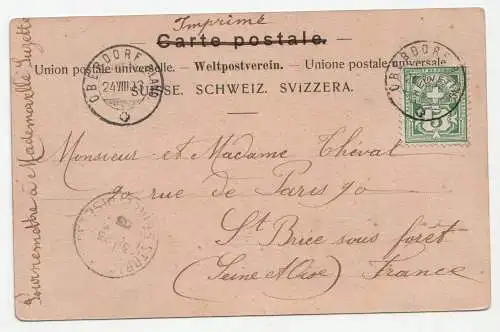 Imprimé
Carte postale.
Union postale universelle. – Weltpostverein. – Unione postale universale
SUISSE. SCHWEIZ. SVIZZERA.
OBERDORF (BASELLAND)
24.VIII.
OBERDORF
5
Monsieur et Madame Théval
90 rue de Paris 90
St Brice sous forêt
(Seine et Oise) France
à Mademoiselle Suzette